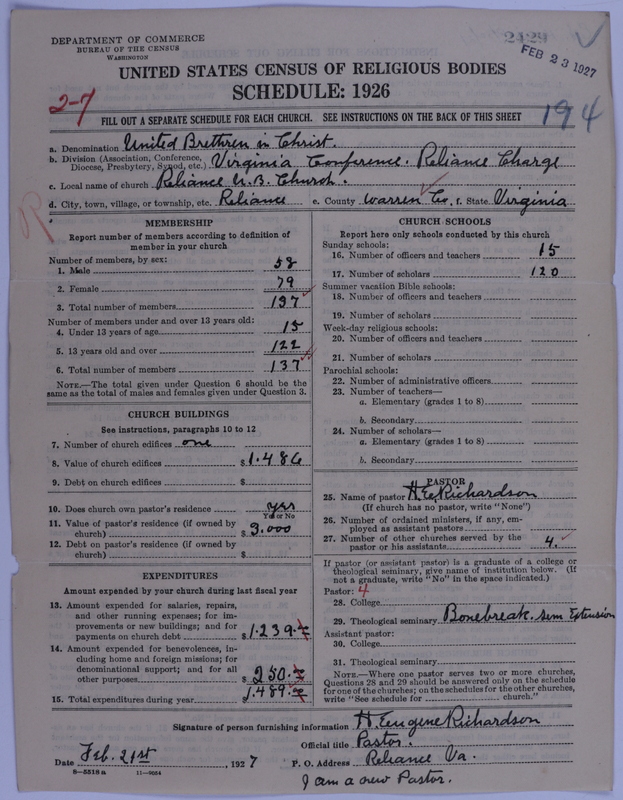 DEPARTMENT OF COMMERCE
BUREAU OF THE CENSUS
WASHINGTON
FEB 23 1927
UNITED STATES CENSUS OF RELIGIOUS BODIES
SCHEDULE: 1926
2-7
194
FILL OUT A SEPARATE SCHEDULE FOR EACH CHURCH. SEE INSTRUCTIONS ON THE BACK OF THIS SHEET
a. Denomination United Brethren in Christ.
b. Division (Association, Conference, Diocese, Presbytery, Synod, etc.) Virginia Conference. Reliance Charge
c. Local name of church Reliance U.B. Church.
d. City, town, village, or township, etc. Reliance e. County Warren Co. f. State Virginia
MEMBERSHIP
Report number of members according to definition of
member in your church
Number of members, by sex:
1. Male 58
2. Female 79
3. Total number of members 137
Number of members under and over 13 years old:
4. Under 13 years of age 15
5. 13 years old and over 122
6. Total number of members 137
NOTE.—The total given under Question 6 should be the
same as the total of males and females given under Question 3.
CHURCH BUILDINGS
See instructions, paragraphs 10 to 12
7. Number of church edifices one
8. Value of church edifices $1.486
9. Debt on church edifices $
10. Does church own pastor's residence yes
Yes or No
11. Value of pastor's residence (if owned by
church) $3.000
12. Debt on pastor's residence (if owned by
church) $
EXPENDITURES
Amount expended by your church during last fiscal year
13. Amount expended for salaries, repairs,
and other running expenses; for im-
provements or new buildings; and for
payments on church debt $1.239.
14. Amount expended for benevolences, in-
cluding home and foreign missions; for
denominational support; and for all
other purposes $250.
15. Total expenditures during year $1.489.
CHURCH SCHOOLS
Report here only schools conducted by this church
Sunday schools:
16. Number of officers and teachers 15
17. Number of scholars 120
Summer vacation Bible schools:
18. Number of officers and teachers
19. Number of scholars
Week-day religious schools:
20. Number of officers and teachers
21. Number of scholars
Parochial schools:
22. Number of administrative officers
23. Number of teachers—
a. Elementary (grades 1 to 8)
b. Secondary
24. Number of scholars—
a. Elementary (grades 1 to 8)
b. Secondary
PASTOR
25. Name of pastor H.E. Richardson
(If church has no pastor, write "None")
26. Number of ordained ministers, if any, em-
ployed as assistant pastors
27. Number of other churches served by the
pastor or his assistants 4.
If pastor (or assistant pastor) is a graduate of a college or
theological seminary, give name of institution below. (If
not a graduate, write "No" in the space indicated.)
Pastor: 4
28. College
29. Theological seminary Bonebreak. Sem Extension
Assistant pastor:
30. College
31. Theological seminary
NOTE.—Where one pastor serves two or more churches,
Questions 28 and 29 should be answered only on the schedule
for one of the churches; on the schedules for the other churches,
write "See schedule for church."
Signature of person furnishing information H. Eugene Richardson
Official title Pastor.
Date Feb. 21st, 1927 P. O. Address Reliance Va.
8—5518a 11—9034
I am a new Pastor.